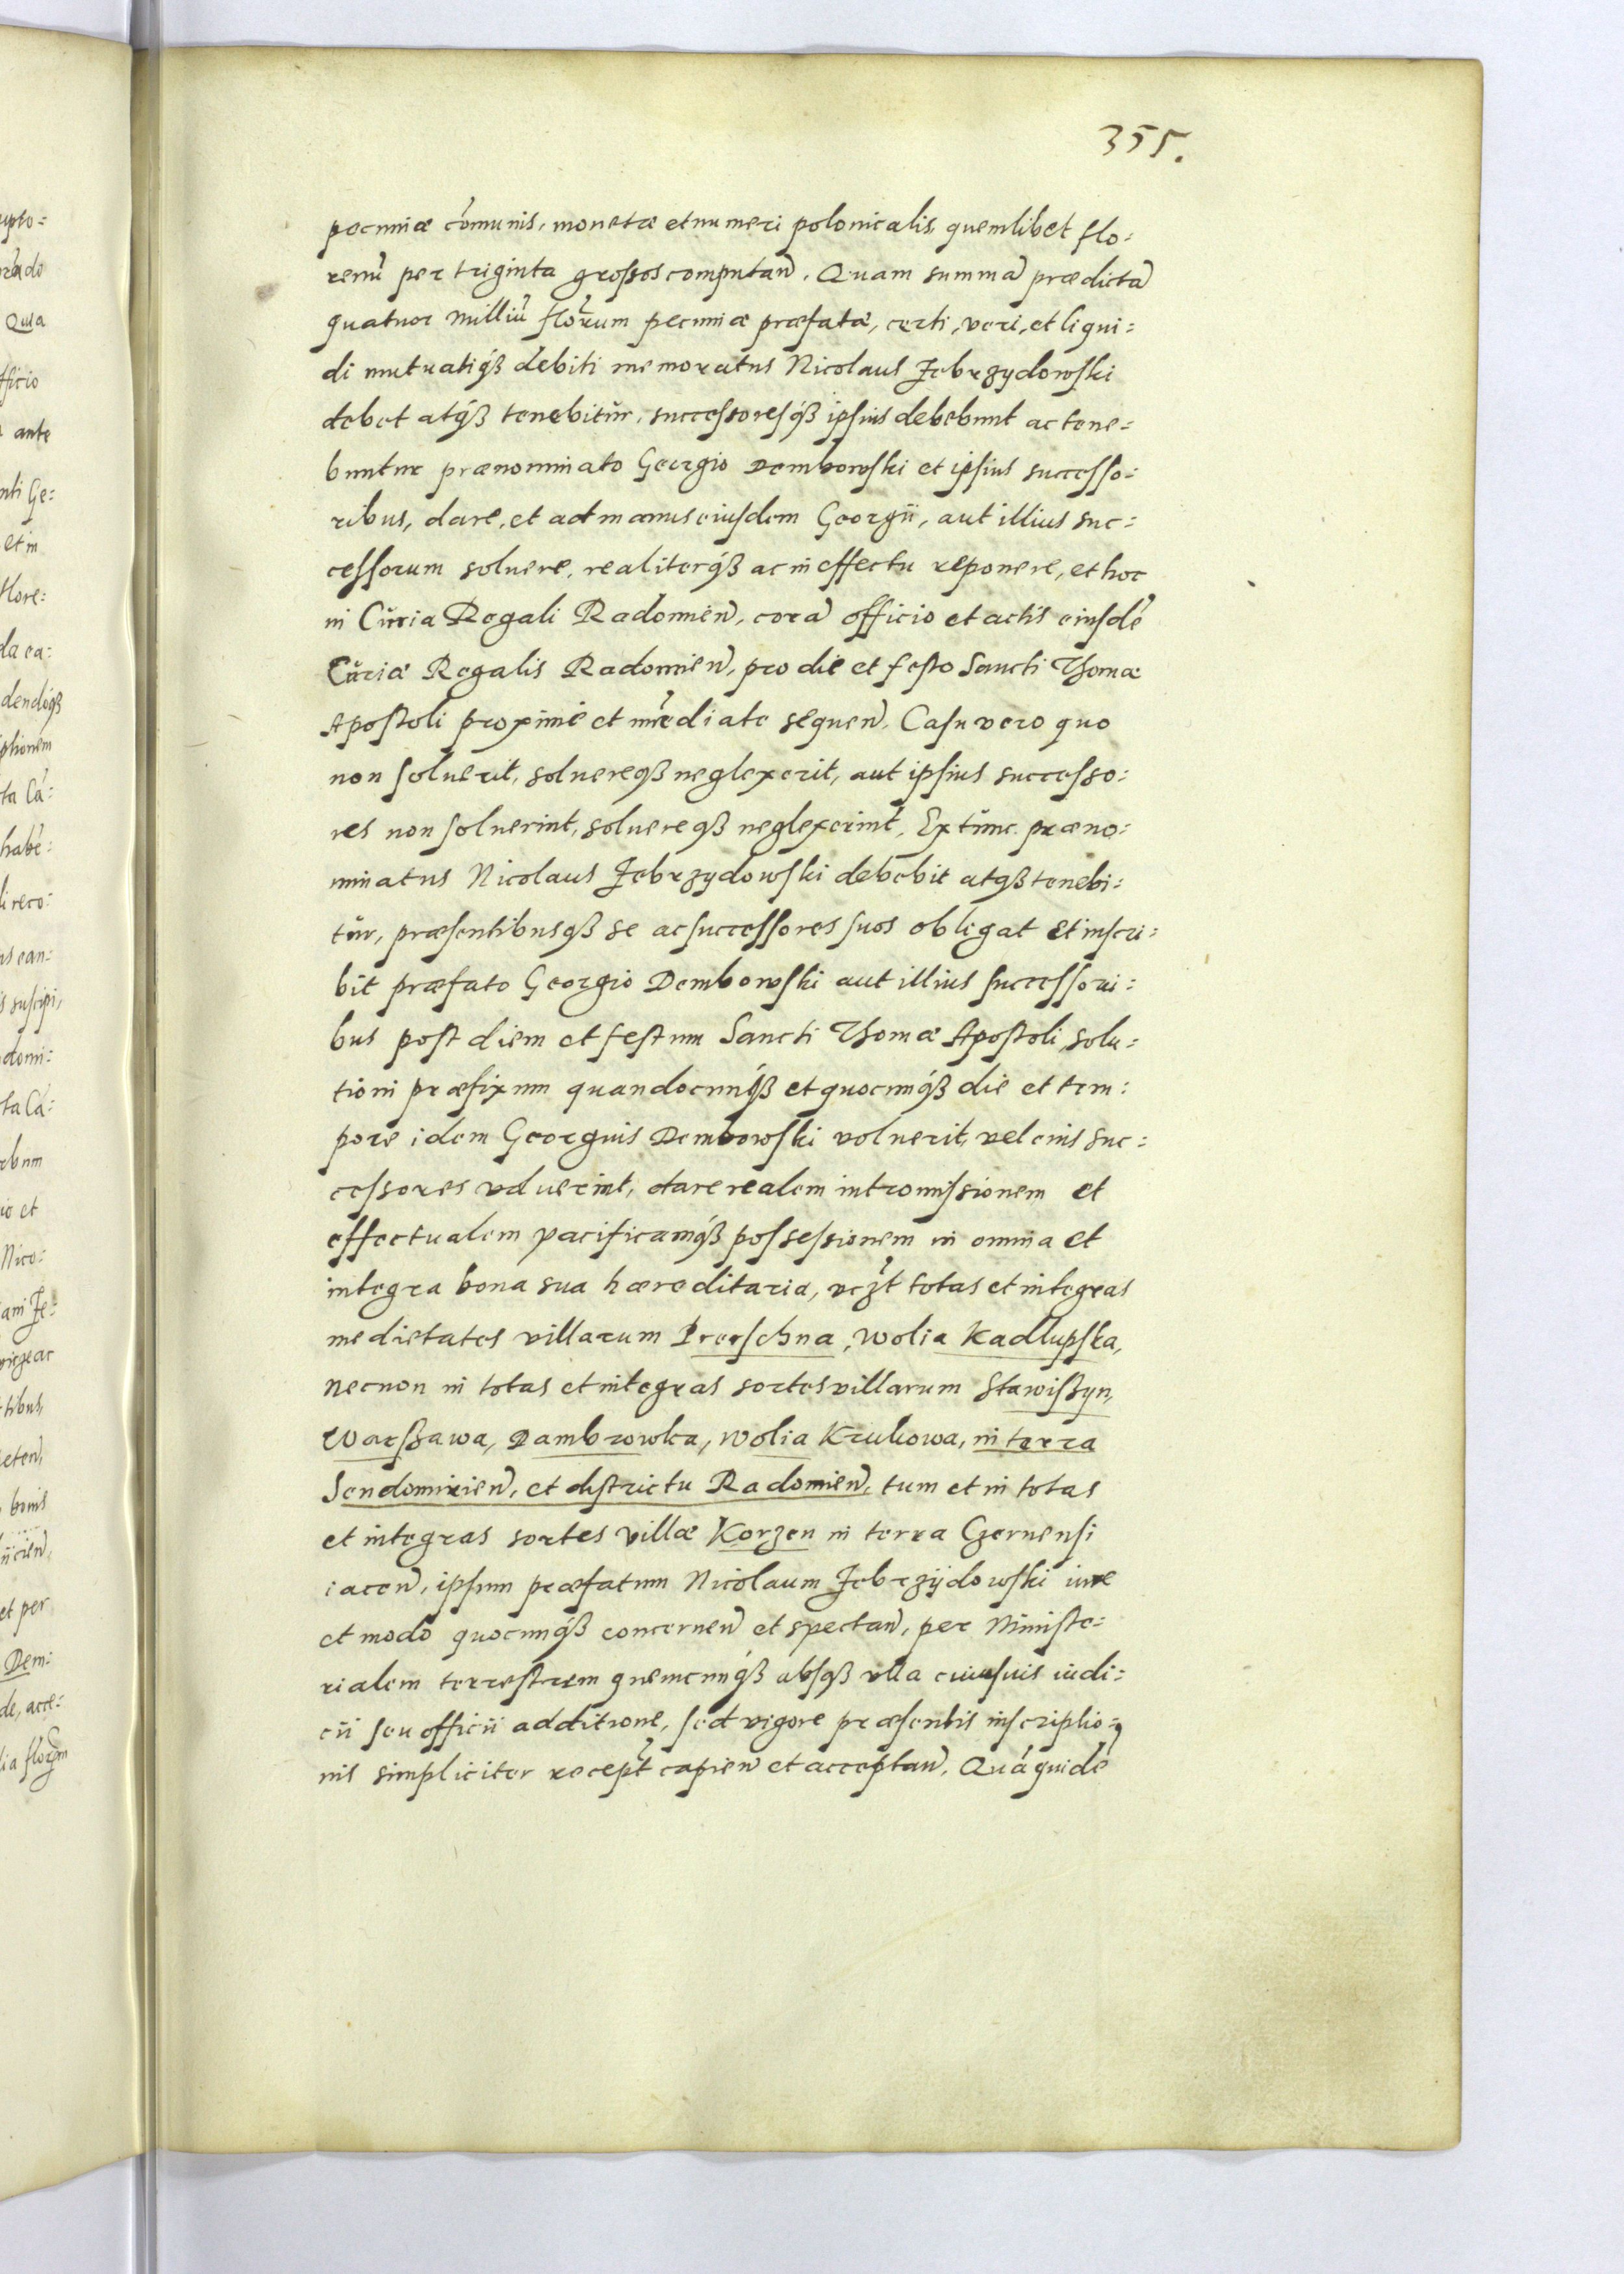 355.
pecuniæ com̃unis, monetæ et numeri polonicalis, quemlibet flo:
renũ per triginta grossos computañ. Quam summã prædictã
quatuor milliũ flor̃um pecuniæ præfatæ, certi, veri, et liqui:
di mutuatiqʒ debiti memoratus Nicolaus Zebrzydowski
debet atqʒ tenebitur, successoresqʒ ipsius debebunt ac tene:
buntur prænominato Georgio Dembowski et ipsius successo:
ribus, dare, et ad manus eiusdem Georgii, aut illius suc:
cessorum soluere, realiterqʒ ac in effectu reponere, et hoc
in Curia Regali Radomieñ, corã officio et actis eiusdẽ
Curiæ Regalis Radomieñ, pro die et festo Sancti Thomæ
Apostoli proxime et im̃ediate sequeñ. Casu vero quo
non soluerit, soluereqʒ neglexerit, aut ipsius successo:
res non soluerint, soluereqʒ neglexerint, Ex tunc præno:
minatus Nicolaus Zebrzydowski debebit atqʒ tenebi:
tur, præsentibusqʒ se ac successores suos obligat et inscri:
bit præfato Georgio Dembowski aut illius successori:
bus post diem et festum Sancti Thomæ Apostoli, solu:
tioni præfixum quandocunqʒ et quocunqʒ die et tem:
pore idem Georgius Dembowski voluerit, vel eius suc:
cessores voluerint, dare realem intromissionem et
effectualem pacificamqʒ possessionem in omnia et
integra bona sua hæreditaria, vezt̃ totas et integras
medietates villarum Prerschna, Wolia Kadlupska,
necnon in totas et integras sortes villarum Stawiszyn,
Warszawa, Dambrowka, Wolia Krukowa, in terra
Sendomirieñ, et districtu Radomieñ, tum et in totas
et integras sortes villæ Korzen in terra Czernensi
iaceñ, ipsum præfatum Nicolaum Zebrzÿdowski iure
et modo quocunqʒ concerneñ et spectañ, per Ministe:
rialem terrestrem quemcunqʒ absqʒ vlla cuiusuis iudi:
cii seu officii additione, sed vigore præsentis inscriptio:
nis simpliciter recept̃ capieñ et acceptañ. Quã quidẽ